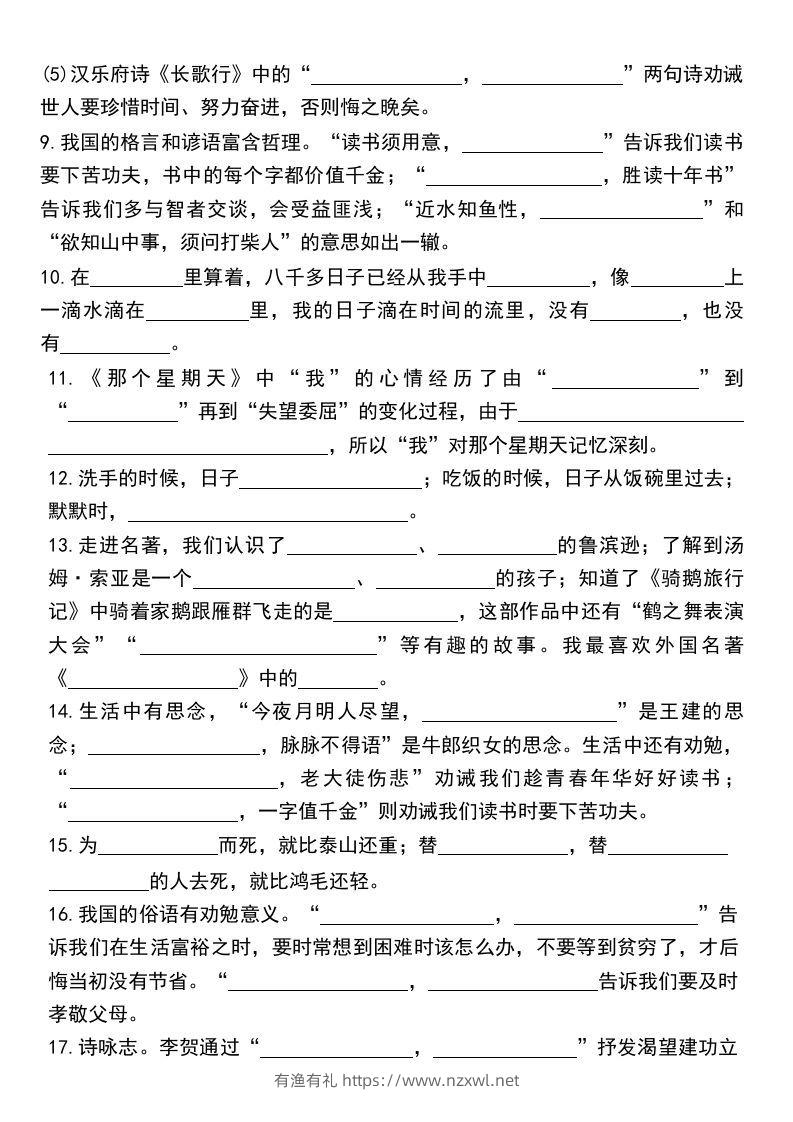 (5)汉乐府诗《长歌行》中的“______，______”两句诗劝诫
世人要珍惜时间、努力奋进，否则悔之晚矣。
9.我国的格言和谚语富含哲理。“读书须用意，______”告诉我们读书
要下苦功夫，书中的每个字都价值千金；“______，胜读十年书”
告诉我们多与智者交谈，会受益匪浅；“近水知鱼性，______”和
“欲知山中事，须问打柴人”的意思如出一辙。
10.在______里算着，八千多日子已经从我手中______，像______上
一滴水滴在______里，我的日子滴在时间的流里，没有______，也没
有______。
11.《那个星期天》中“我”的心情经历了由“______”到
“______”再到“失望委屈”的变化过程，由于______
______，所以“我”对那个星期天记忆深刻。
12.洗手的时候，日子______；吃饭的时候，日子从饭碗里过去；
默默时，______。
13.走进名著，我们认识了______、______的鲁滨逊；了解到汤
姆·索亚是一个______、______的孩子；知道了《骑鹅旅行
记》中骑着家鹅跟雁群飞走的是______，这部作品中还有“鹤之舞表演
大会”“______”等有趣的故事。我最喜欢外国名著
《______》中的______。
14.生活中有思念，“今夜月明人尽望，______”是王建的思
念；______，脉脉不得语”是牛郎织女的思念。生活中还有劝勉，
“______，老大徒伤悲”劝诫我们趁青春年华好好读书；
“______，一字值千金”则劝诫我们读书时要下苦功夫。
15.为______而死，就比泰山还重；替______，替______
______的人去死，就比鸿毛还轻。
16.我国的俗语有劝勉意义。“______，______”告
诉我们在生活富裕之时，要时常想到困难时该怎么办，不要等到贫穷了，才后
悔当初没有节省。“______，______告诉我们要及时
孝敬父母。
17.诗咏志。李贺通过“______，______”抒发渴望建功立
有渔有礼 https://www.nzxwl.net